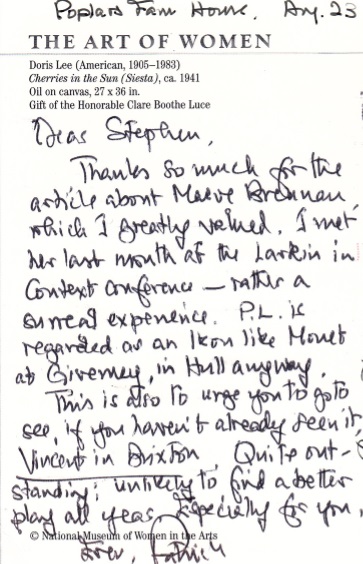 Poplars Farm House. Aug. 23
THE ART OF WOMEN
Doris Lee (American, 1905–1983)
Cherries in the Sun (Siesta), ca. 1941
Oil on canvas, 27 x 36 in.
Gift of the Honorable Clare Boothe Luce
Dear Stephen,
Thanks so much for the
article about Maeve Brennan,
which I greatly valued. I met
her last month at the Larkin in
Context conference — rather a
surreal experience. P.L. is
regarded as an Ikon like Monet
at Giverney, in Hull anyway.
This is also to urge you to go to
see, if you haven't already seen it,
Vincent in Brixton. Quite out-
standing; unlikely to find a better
play all year. Especially for you.
© National Museum of Women in the Arts
Ever, Patrick